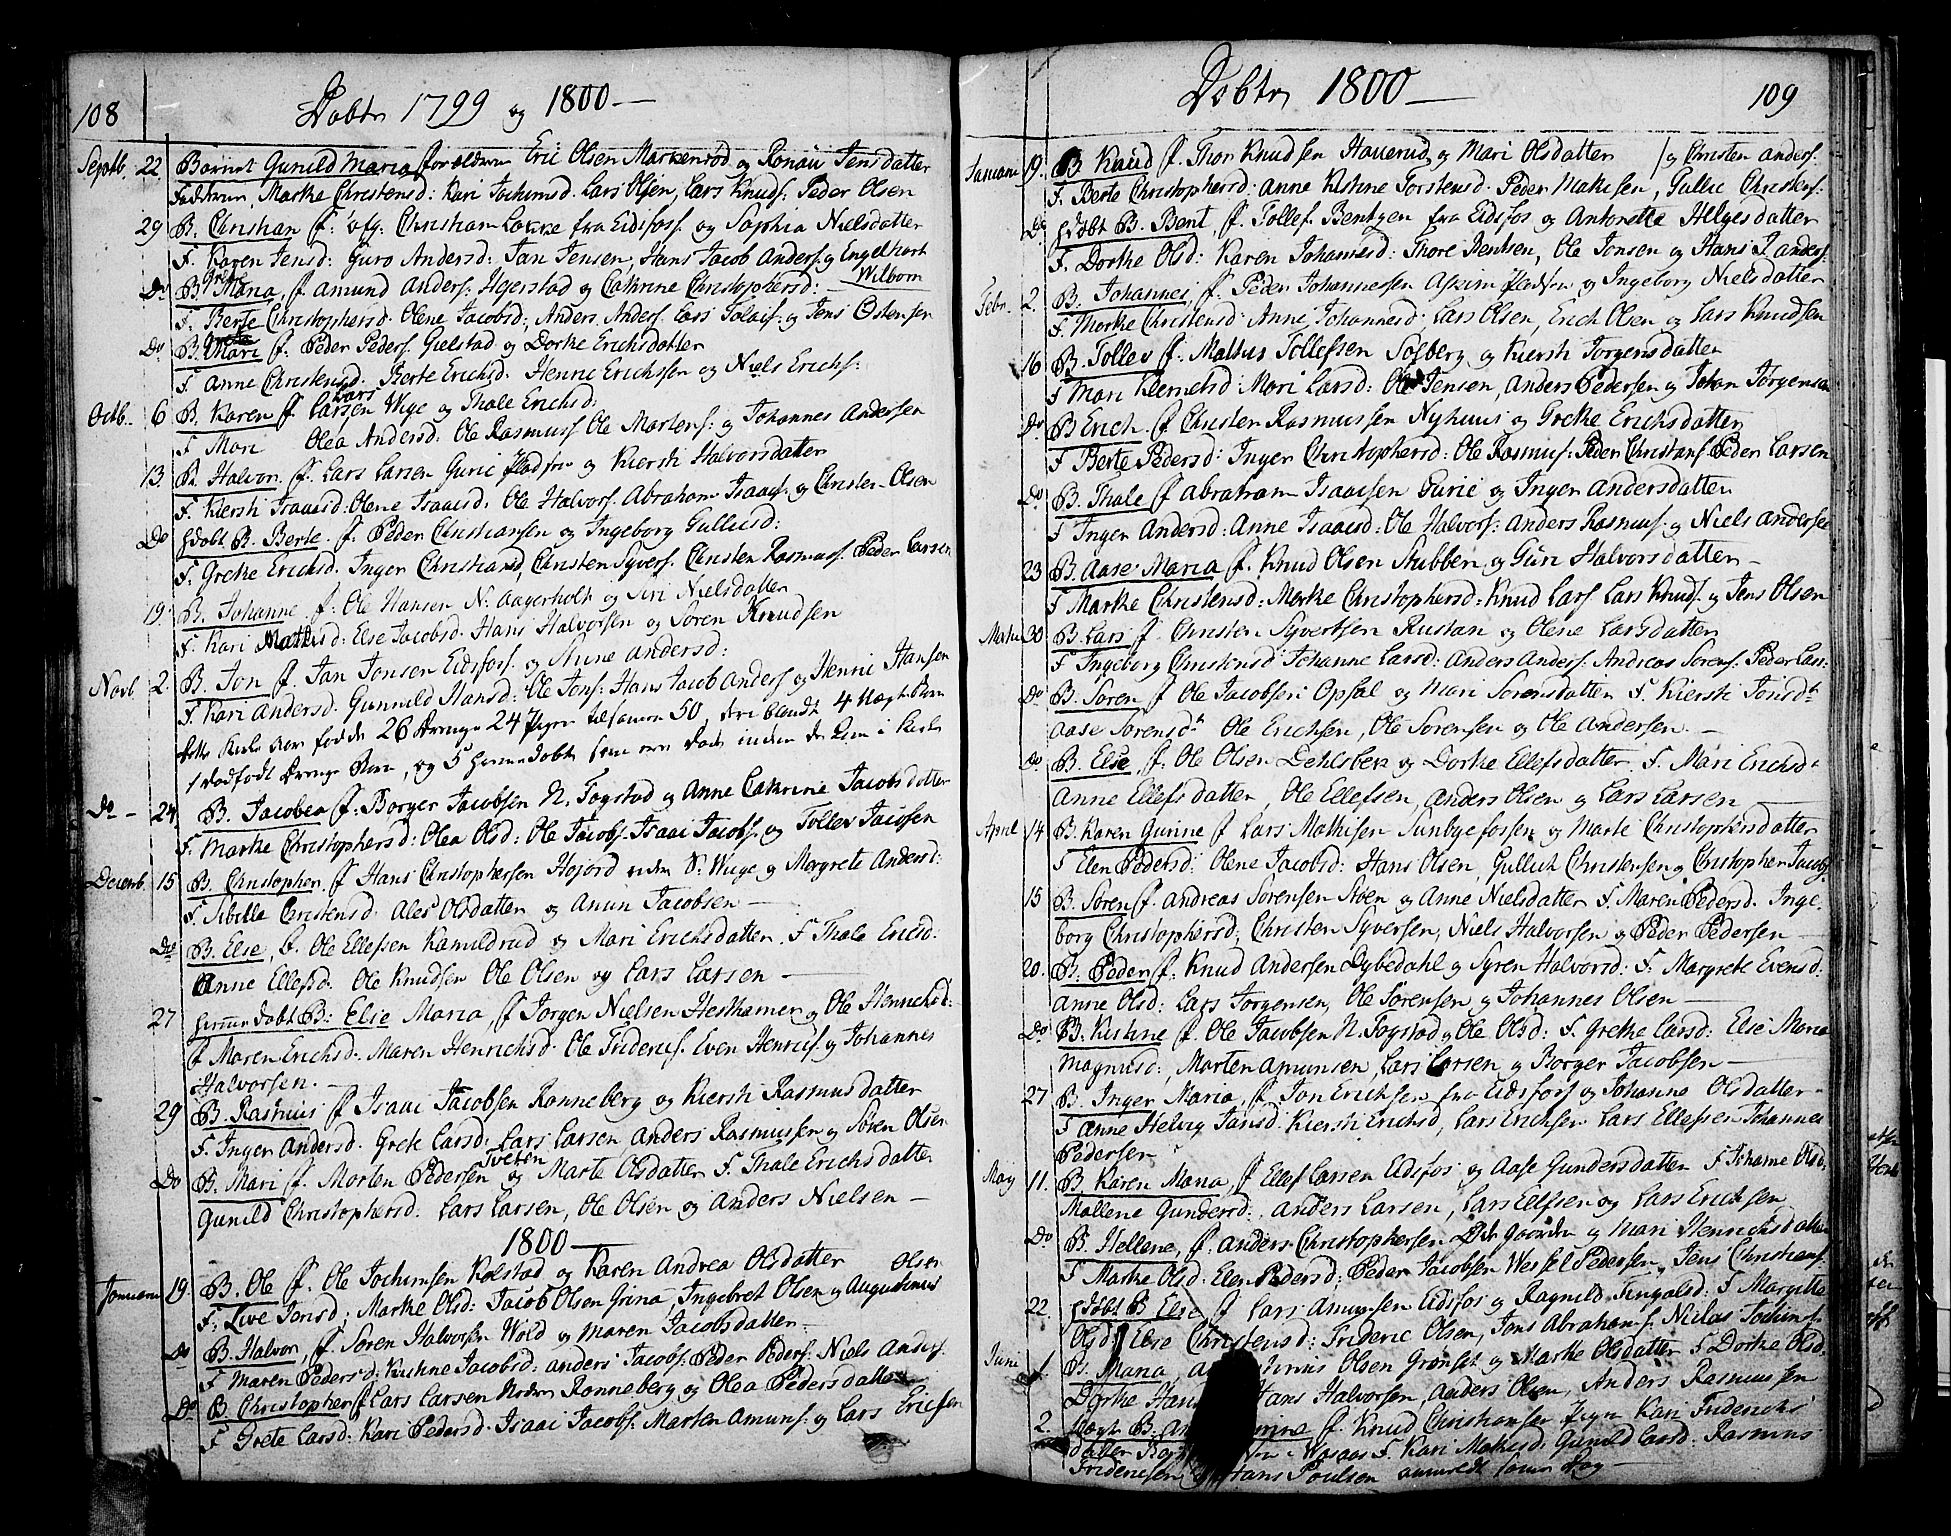 108
Døbte 1799 og 1800 —
Septb. 22 Barnet Gunild Maria forældrene Eric Olsen Markenrød og Ronau Jensdatter
Faddrene, Marthe Christensd: Kari Jochumsd. Lars Olsen, Lars Knuds: Peder Olsen
29 B. Christian f: Christian Løkke fra Eidsfoss og Sophia Nielsdatter
F. Karen Jensd: Guro Andersd: Jan Jensen, Hans Jacob Anders: og Engelhart
Wilborn
Do B. Grete Maria, f Amund Anders: Hejerstad og Cathrine Christophersd: —
F. Berte Christophersd. Olene Jacobsd., Anders Anders: Lars Tolais: og Jens Ostensen
Do B. Mari f: Peder Peders: Gielstad og Dorthe Erichsdatter
F Anne Christensd. Berte Erichsd. Henric Erichsen og Niels Erichs:
Octb. 6 B. Karen f Lars Larsen Wige og Thale Erichsd:
F Mari Olea Andersd: Ole Rasmuss Ole Martens: og Johannes Andersen
13. B. Halvor f. Lars Larsen Gurie og Kiersti Halvorsdatter
F. Kiersti Isaacsd: Olene Isaacsd. Ole Halvors: Abraham Isaacs: og Christen Olsen
Do Hdøbt B. Berte f. Peder Christiansen og Ingeborg Gullichsd:
F. Grethe Erichsd. Inger Christiansd, Christen Syvers: Christen Rasmuss: Peder Larsen
19. B. Johanne f. Ole Hansen N: Aagerholt og Siri Nielsdatter
F. Kari Mathisd: Else Jacobsd. Hans Halvorsen og Søren Knudsen
Novb. 2. B. Jon f Jan Jonsen Eidsfoss. og Anne Andersd:
F. Kari Andersd. Gunnild Hansd: Ole Jons: Hans Jacob Anders: og Henric Hansen
26 Drenge 24 Piger tilsammen 50, der iblandt 4
1 Dødfødt Drenge Barn, og 5 hjemme døbt som
Do — 24. B. Jacobea f: Borger Jacobsen N. Fogstad og Anne Cathrine Jacobsdatter
F. Marthe Christophersd: Olea Olsd: Ole Jacobs. Isaac Jacobs: og Tollev Jacobsen
Decemb. 15 B. Christopher f Hans Christophersen Hojord under S: Wige og Margrete Andersd:
F. Sibille Christensd. Ales Olsdatter og Amun Jacobsen —
Do B. Else, f. Ole Ellefsen Kamildrud og Mari Erichsdatter. F Thale Ericsd:
Anne Ellefsd. Ole Knudsen Ole Olsen og Lars Larsen —
27 hjemme døbt B: Else Maria, f Jørgen Nielsen Hesthamer og Ole Henrichsd:
f Maren Erichsd: Maren Henrichsd. Ole Frideris: Even Henrics: og Johannes
Halvorsen. —
29 B. Rasmus f Isaac Jacobsen Ronneberg og Kiersti Rasmusdatter
F. Inger Andersd. Grete Larsd: Lars Larsen Anders Rasmussen og Søren Olsen
Do B. Mari f. Morten Pedersen Tveten og Marte Olsdatter F. Thale Erichsdatter
Gunild Christophersd: Lars Larsen, Ole Olsen og Anders Nielsen —
1800 —
Januarii 19. B. Ole f. Ole Jochumsen Kolstad og Karen Andrea Olsdatter Olsen
F. Live Jonsd; Marthe Olsd: Jacob Olsen Grina, Ingebret Olsen og Augustinus
Do B. Halvor, f. Søren Halvorsen Wold og Maren Jacobsdatter —
F Maren Pedersd: Kirstine Jacobsd: Anders Jacobs: Peder Peders: Niels Anders:
Do B Christopher f Lars Larsen Nedre Ronneberg og Olea Pedersdatter
F Grete Larsd: Kari Pedersd. Isaac Jacobs: Marten Amuns: og Lars Ericsen
Døbte 1800 — 109
Januarii 19. B Knud f. Thor Knudsen Haverud og Mari Olsdatter / og Christen Anders:
F. Berte Christophersd: Anne Kistine Torstensd. Peder Mathisen, Gullic Christens:
Do Hdøbt B. Bent, f. Tollef Bentzen fra Eidsfos og Antonette Helgesdatter
F. Dorthe Olsd: Karen Johannesd: Thore Bentsen, Ole Jonsen og Hans J Anders:
Febr. 2. B. Johannes f. Peder Johannessen Askim og Ingeborg Nielsdatter
F Marthe Christensd: Anne Johannesd: Lars Olsen, Erich Olsen og Lars Knudsen
16 B. Tollev f. Mathis Tollefsen Solberg og Kiersti Jørgensdatter
F Mari Klemetsd: Mari Larsd: Ole Jensen, Anders Pedersen og Johan Jørgensen
Do B Erich f Christen Rasmussen Nyhuus og Grethe Erichsdatter
F Berte Pedersd: Inger Christophersd: Ole Rasmus: Peder Christians: Peder Larsen
Do. B. Thale f Abraham Isaacsen Gurie og Inger Andersdatter
F Inger Andersd: Anne Isaacsd: Ole Halvors: Anders Rasmus: og Niels Andersen
23 B. Aase Maria f. Knud Olsen Stubben og Guri Halvorsdatter —
F Marthe Christensd: Marthe Christophersd: Knud Lars: Lars Knuds: og Jens Olsen
Martii 30 B. Lars f. Christen Syvertsen Rustan og Olene Larsdatter
F Ingeborg Christensd: Johanne Larsd: Anders Anders: Andreas Sorens: Peder Lars:
Do B. Søren f Ole Jacobsen Opsal og Mari Sørensdatter F. Kiersti Jonsdr
Aase Sørensdr Ole Erichsen, Ole Sørensen og Ole Andersen. —
Do. B. Else, f. Ole Olsen Dehlsbek og Dorthe Ellefsdatter F. Mari Erichsd.
Anne Ellefsdatter, Ole Ellefsen, Anders Olsen og Lars Larsen —
April 14 B. Karen Gurine f Lars Mathisen Sunbyefossen og Marte Christophersdatter
F Elen Pedersd: Olene Jacobsd: Hans Olsen, Gullich Christensen og Christopher Jacobs:
15 B. Søren f. Andreas Sørensen Stoen og Anne Nielsdatter F. Maren Pedersd. Inge-
borg Christophersd: Christen Syversen, Niels Halvorsen og Peder Pedersen —
20. B: Peder f. Knud Andersen Dybedahl og Syren Halvorsd: F. Margrete Evensd.
Anne Olsd: Lars Jørgensen, Ole Sørensen og Johannes Olsen —
Do B. Kistine f. Ole Jacobsen N. Fogstad og Ole Olsd: F. Grethe Larsd: Else Maria
Magnusd:, Morten Amunsen, Lars Larsen og Borger Jacobsen —
27 B. Inger Maria, f Jon Erichsen fra Eidsfoss og Johanne Olsdatter —
F Anne Helvig Jansd. Kiersti Erichsd, Lars Erichsen Lars Ellefsen Johannes
Pedersen
May 11. B Karen Maria, f Ellef Larsen Eidsfos og Aase Gundersdatter F Johanne Olsd.
Mallene Gundersd: Anders Larsen, Lars Ellefsen og Lars Erichsen
Do B. Hellene, f. Anders Christophersen og Mari Henrichsdatter
F Marthe Olsd: Elen Pedersd: Peder Jacobsen Wessel Pedersen, Jens Christians:
22 Hdøbt B Else f Lars Amunsen Eidsfos og Ragnild Tingalsd: F Margitte
Olsd: Else Christensd: Frideric Olsen, Jens Abrahams: Niclas Jochums:
Juni 1. B. Maria, Olsen Grønset og Marthe Olsdatter F Dorthe Olsd.
Dorthe Hans Hans Halvorsen, Anders Olsen, Anders Rasmussen
2. B. f. Knud Christiansen Kari Friderichs
datter F. Kari Mathisd. Gunild Larsd. Rasmus
Fridericsen og Hans Poulsen samme Dag —